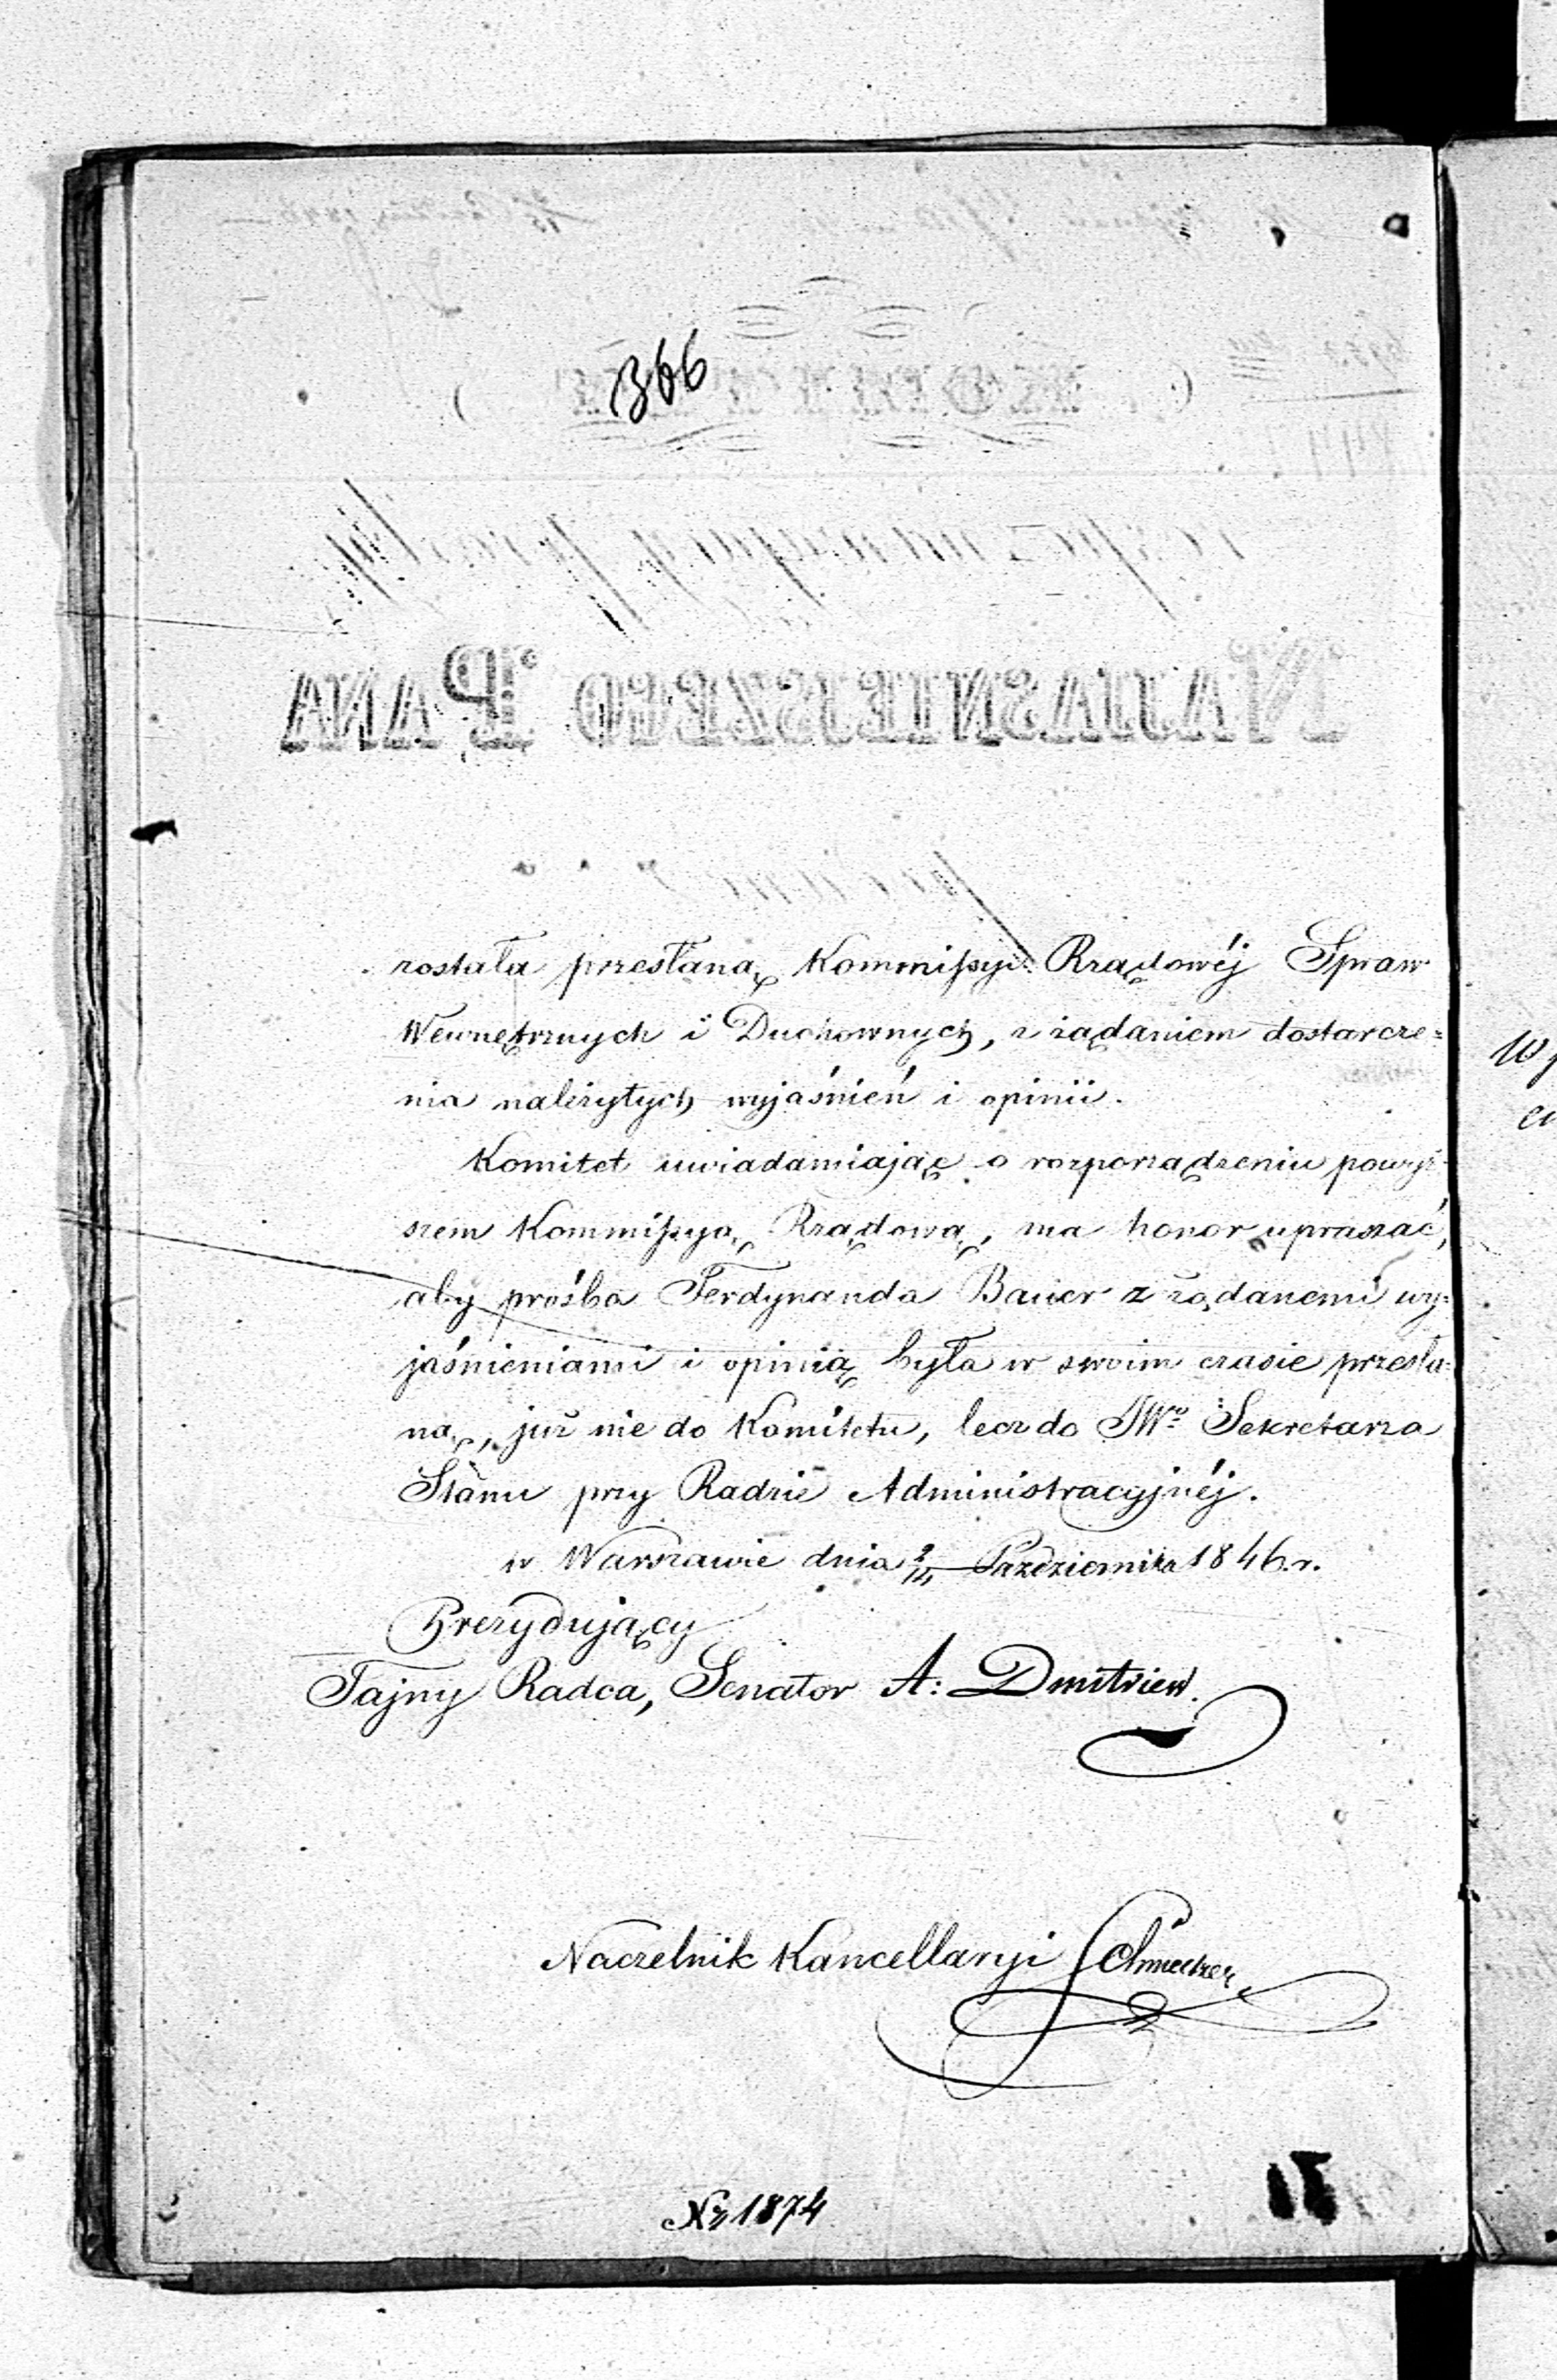 366
została przesłaną Kommissyi Rządowéj Spraw
Wewnętrznych i Duchownych, z żądaniem dostarcze=
nia należytych wyjaśnień i opinii.
Komitet uwiadamiając o rozporządzeniu powyż=
szem Kommissyą Rządową, ma honor upraszać,
aby prośba Ferdynanda Bauer z żądanemi wy=
jaśnieniami i opinią była w swoim czasie przesła=
ną, już nie do Komitetu, lecz do JWo Sekretarza
Stanu przy Radzie Administracyjnéj.
w Warszawie dnia 2/14 Października 1846 r.
Prezydujący
Tajny Radca, Senator A: Dmitriew.
Naczelnik Kancellaryi
Nr 1874